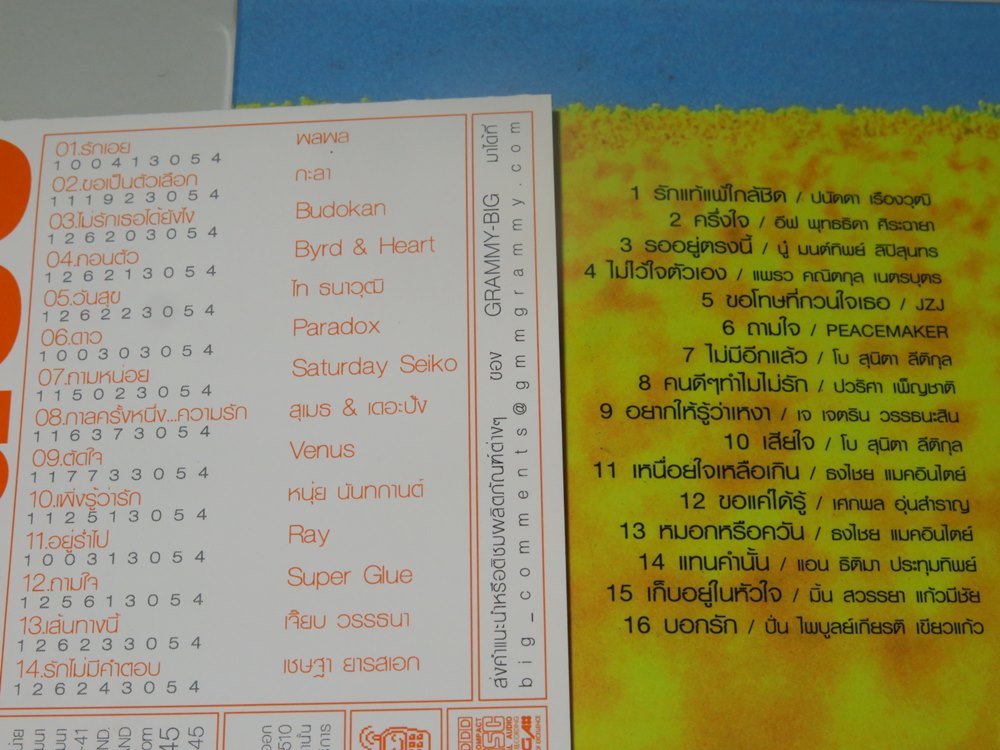 01.รักเอย พลพล
1 0 0 4 1 3 0 5 4
02.ขอเป็นตัวเลือก กะลา
1 1 1 9 2 3 0 5 4
03.ไม่รักเธอได้ยังไง Budokan
1 2 6 2 0 3 0 5 4
04.ถอนตัว Byrd & Heart
1 2 6 2 1 3 0 5 4
05.วันสุข ไท ธนาวุฒิ
1 2 6 2 2 3 0 5 4
06.ดาว Paradox
1 0 0 3 0 3 0 5 4
07.ถามหน่อย Saturday Seiko
1 1 5 0 2 3 0 5 4
08.กาลครั้งหนึ่ง...ความรัก สุเมธ & เดอะปั๋ง
1 1 6 3 7 3 0 5 4
09.ตัดใจ Venus
1 1 7 7 3 3 0 5 4
10.เพิ่งรู้ว่ารัก หนุ่ย นันทกานต์
1 1 2 5 1 3 0 5 4
11.อยู่ร่ำไป Ray
1 0 0 3 1 3 0 5 4
12.ถามใจ Super Glue
1 2 5 6 1 3 0 5 4
13.เส้นทางนี้ เจี๊ยบ วรรธนา
1 2 6 2 3 3 0 5 4
14.รักไม่มีคำตอบ เชษฐา ยารสเอก
1 2 6 2 4 3 0 5 4
ส่งคำแนะนำหรือติชมผลิตภัณฑ์ต่างๆ ของ GRAMMY-BIG มาได้ที่
big_comments@gmmgrammy.com
1 รักแท้แพ้ใกล้ชิด / ปนัดดา เรืองวุฒิ
2 ครึ่งใจ / อีฟ พุทธธิดา ศิระฉายา
3 รออยู่ตรงนี้ / นู๋ มนต์ทิพย์ ลิปิสุนทร
4 ไม่ไว้ใจตัวเอง / แพรว คณิตกุล เนตรบุตร
5 ขอโทษที่กวนใจเธอ / JZJ
6 ถามใจ / PEACEMAKER
7 ไม่มีอีกแล้ว / โบ สุนิตา ลีติกุล
8 คนดีๆทำไมไม่รัก / ปวริศา เพ็ญชาติ
9 อยากให้รู้ว่าเหงา / เจ เจตริน วรรธนะสิน
10 เสียใจ / โบ สุนิตา ลีติกุล
11 เหนื่อยใจเหลือเกิน / ธงไชย แมคอินไตย์
12 ขอแค่ได้รู้ / เศกพล อุ่นสำราญ
13 หมอกหรือควัน / ธงไชย แมคอินไตย์
14 แทนคำนั้น / แอน ธิติมา ประทุมทิพย์
15 เก็บอยู่ในหัวใจ / มิ้น สวรรยา แก้วมีชัย
16 บอกรัก / ปั่น ไพบูลย์เกียรติ เขียวแก้ว